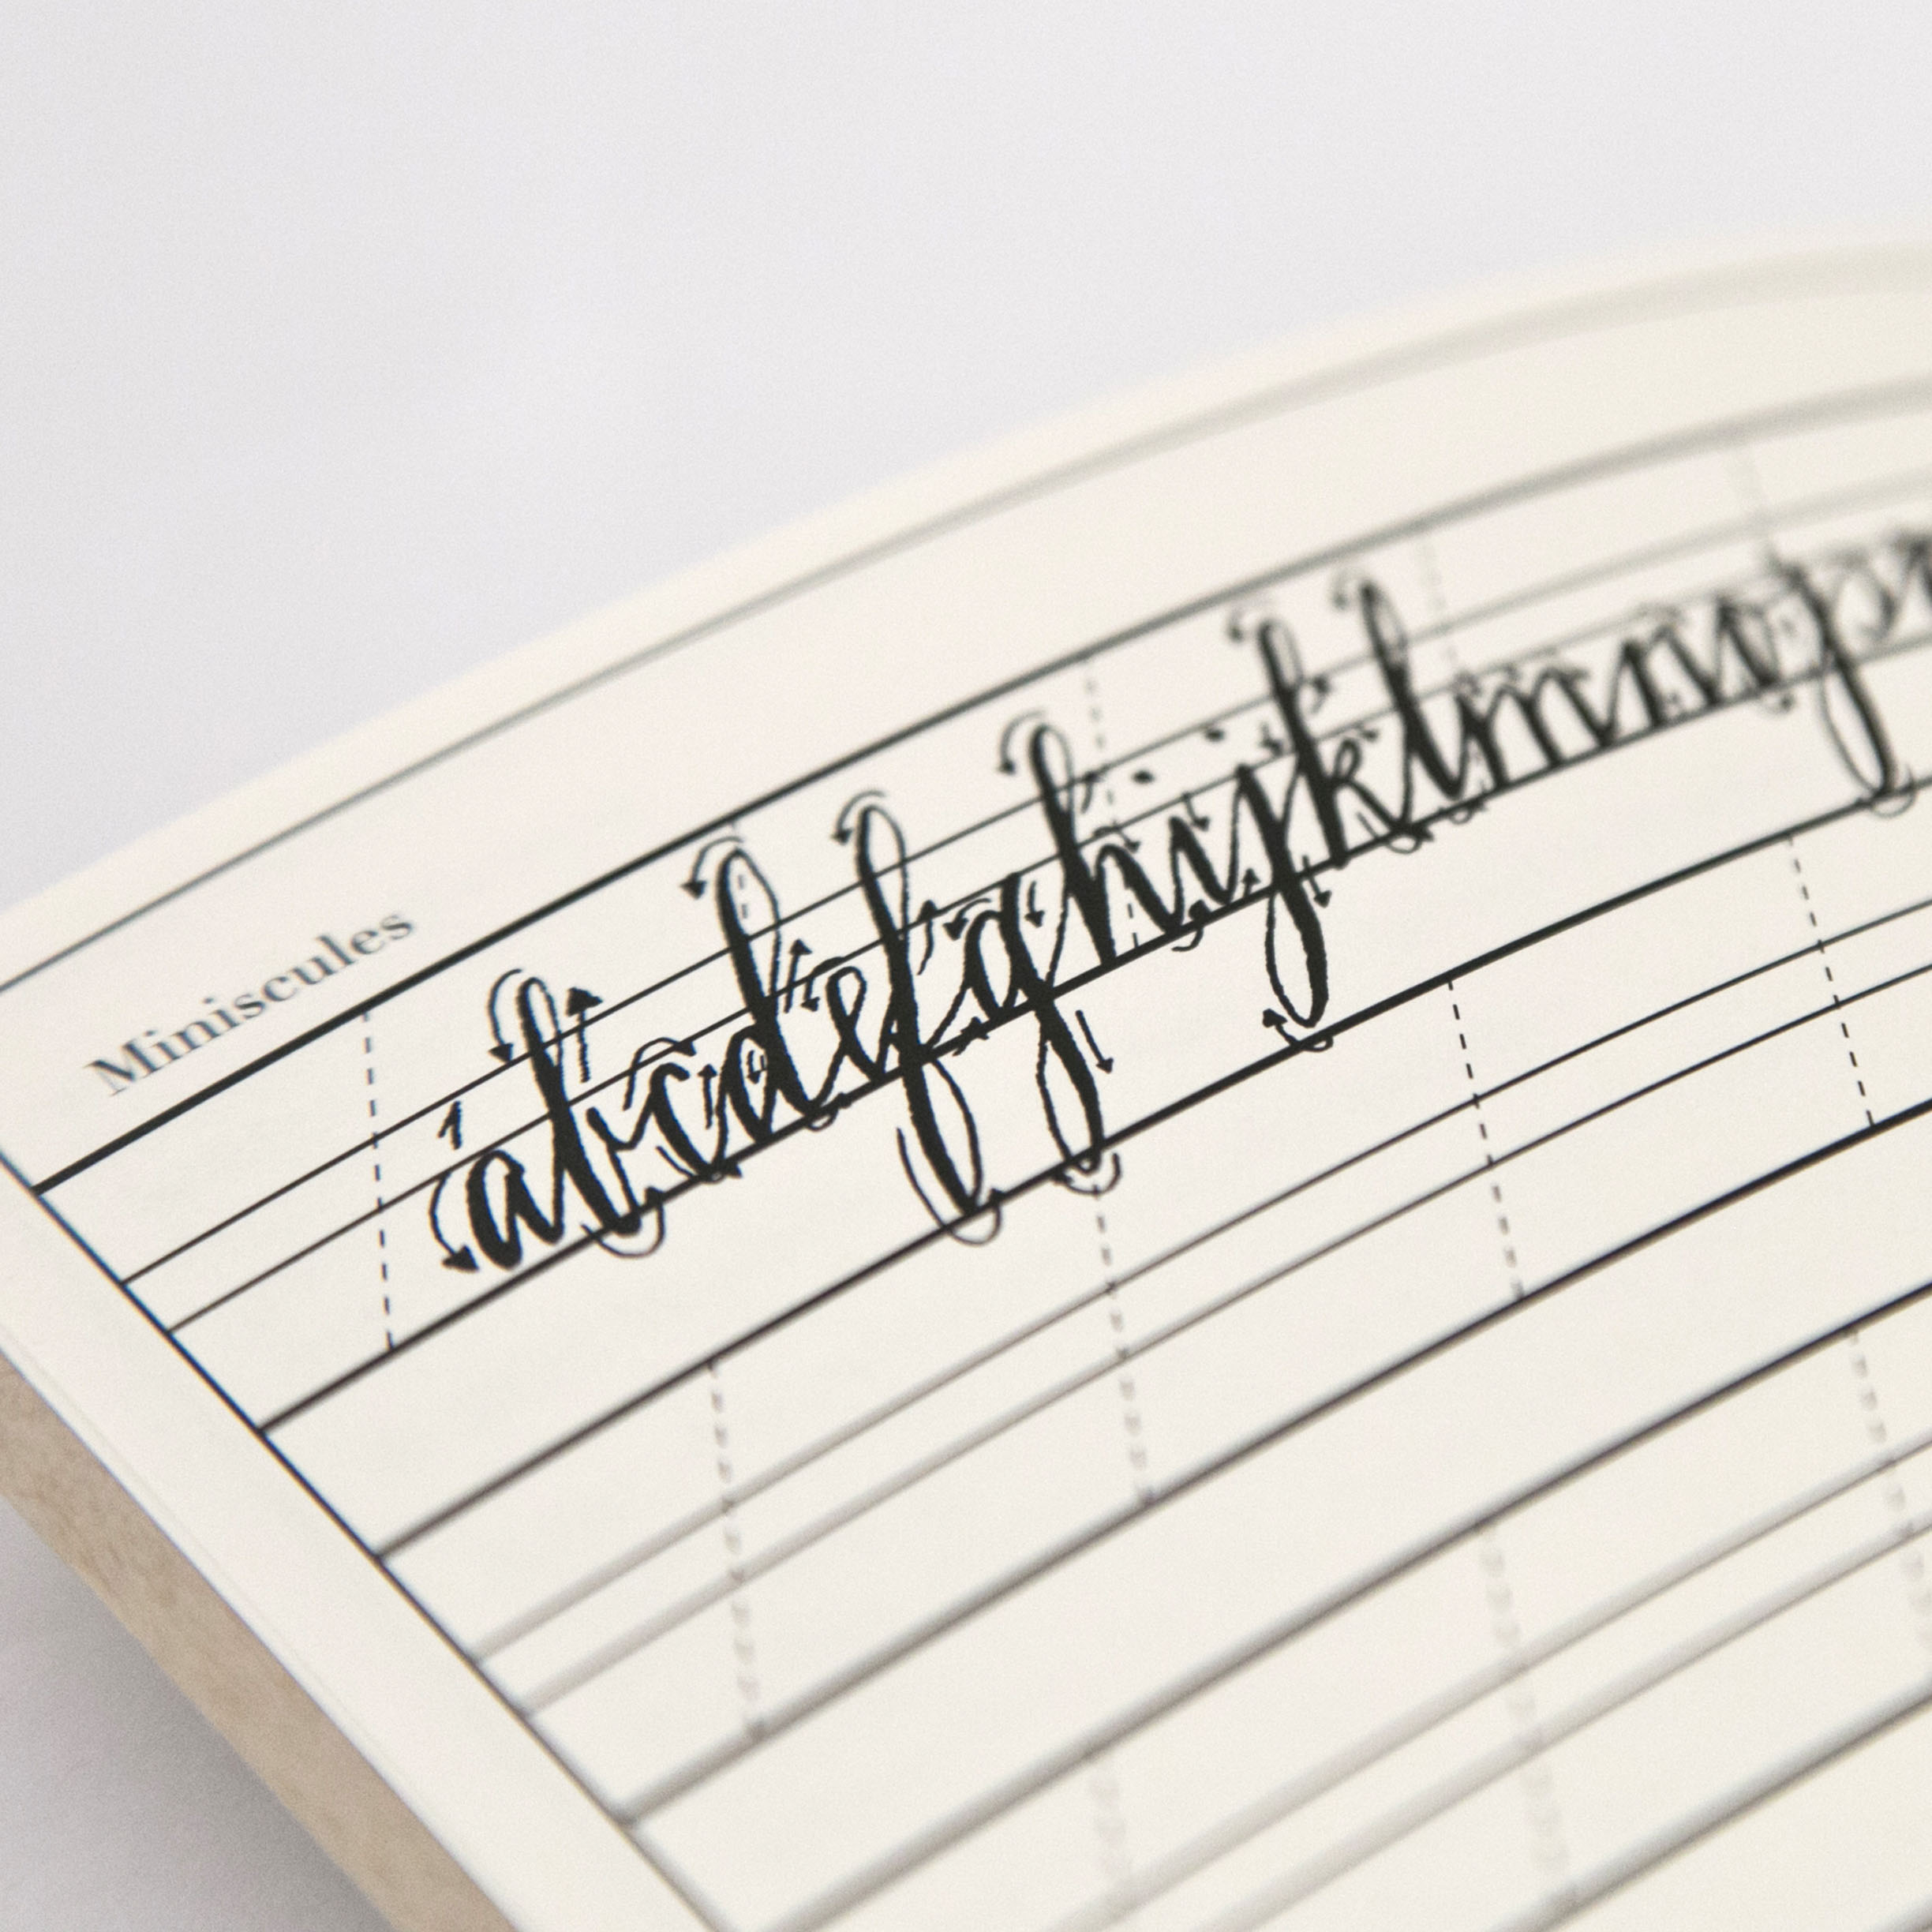 Miniscules
1
abcdefghijklmnop